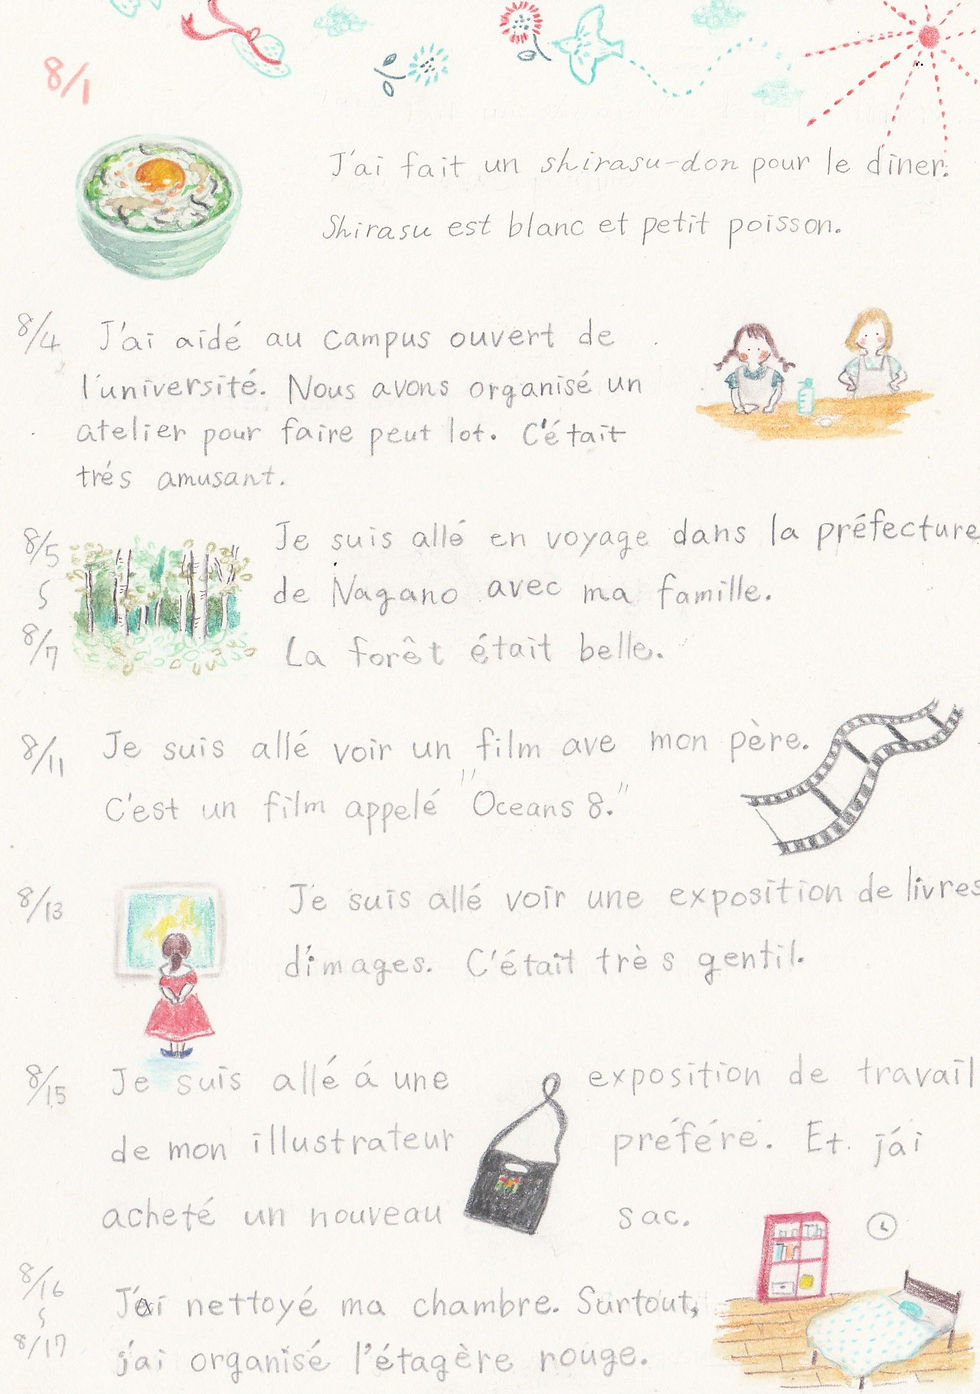 8/1
J'ai fait un shirasu-don pour le dîner.
Shirasu est blanc et petit poisson.
8/4 J'ai aidé au campus ouvert de
l'université. Nous avons organisé un
atelier pour faire peut lot. C'était
trés amusant.
8/5 Je suis allé en voyage dans la préfecture
de Nagano avec ma famille.
8/7 La forêt était belle.
8/11 Je suis allé voir un film ave mon père.
C'est un film appelé "Oceans 8."
8/13 Je suis allé voir une exposition de livres
d'images. C'était très gentil.
8/15 Je suis allé á une exposition de travail
de mon illustrateur préféré. Et j'ai
acheté un nouveau sac.
8/16
J'ai nettoyé ma chambre. Surtout,
8/17 j'ai organisé l'étagère rouge.